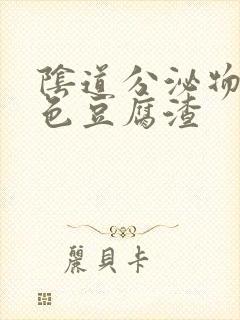 陰道分泌物
色豆腐渣
麗貝卡